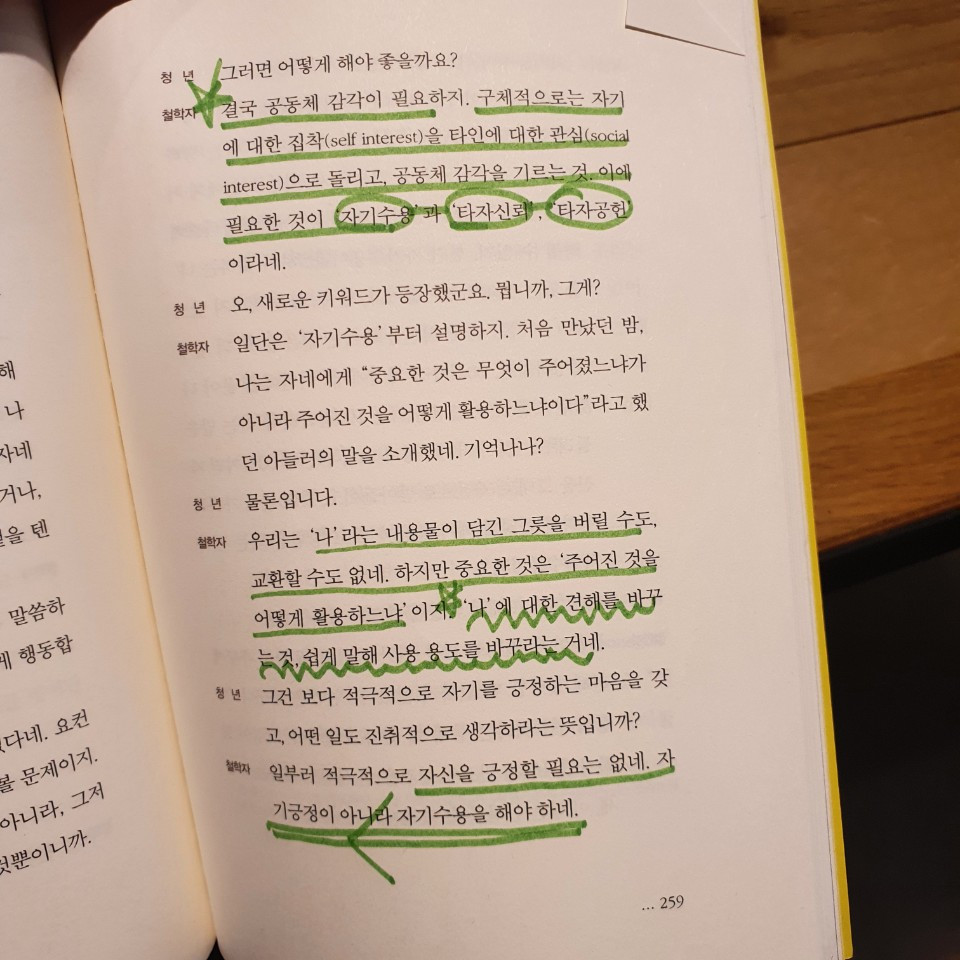 해
나
자네
거나,
을 텐
말씀하
게 행동합
있다네. 요컨
볼 문제이지.
아니라, 그저
것뿐이니까.
청 년 그러면 어떻게 해야 좋을까요?
철학자 결국 공동체 감각이 필요하지. 구체적으로는 자기
에 대한 집착(self interest)을 타인에 대한 관심(social
interest)으로 돌리고, 공동체 감각을 기르는 것. 이에
필요한 것이 ‘자기수용’과 ‘타자신뢰’, ‘타자공헌’
이라네.
청 년 오, 새로운 키워드가 등장했군요. 뭡니까, 그게?
철학자 일단은 ‘자기수용’부터 설명하지. 처음 만났던 밤,
나는 자네에게 “중요한 것은 무엇이 주어졌느냐가
아니라 주어진 것을 어떻게 활용하느냐이다”라고 했
던 아들러의 말을 소개했네. 기억나나?
청 년 물론입니다.
철학자 우리는 ‘나’라는 내용물이 담긴 그릇을 버릴 수도,
교환할 수도 없네. 하지만 중요한 것은 ‘주어진 것을
어떻게 활용하느냐’이지. ‘나’에 대한 견해를 바꾸
는 것, 쉽게 말해 사용 용도를 바꾸라는 거네.
청 년 그건 보다 적극적으로 자기를 긍정하는 마음을 갖
고, 어떤 일도 진취적으로 생각하라는 뜻입니까?
철학자 일부러 적극적으로 자신을 긍정할 필요는 없네. 자
기긍정이 아니라 자기수용을 해야 하네.
... 259